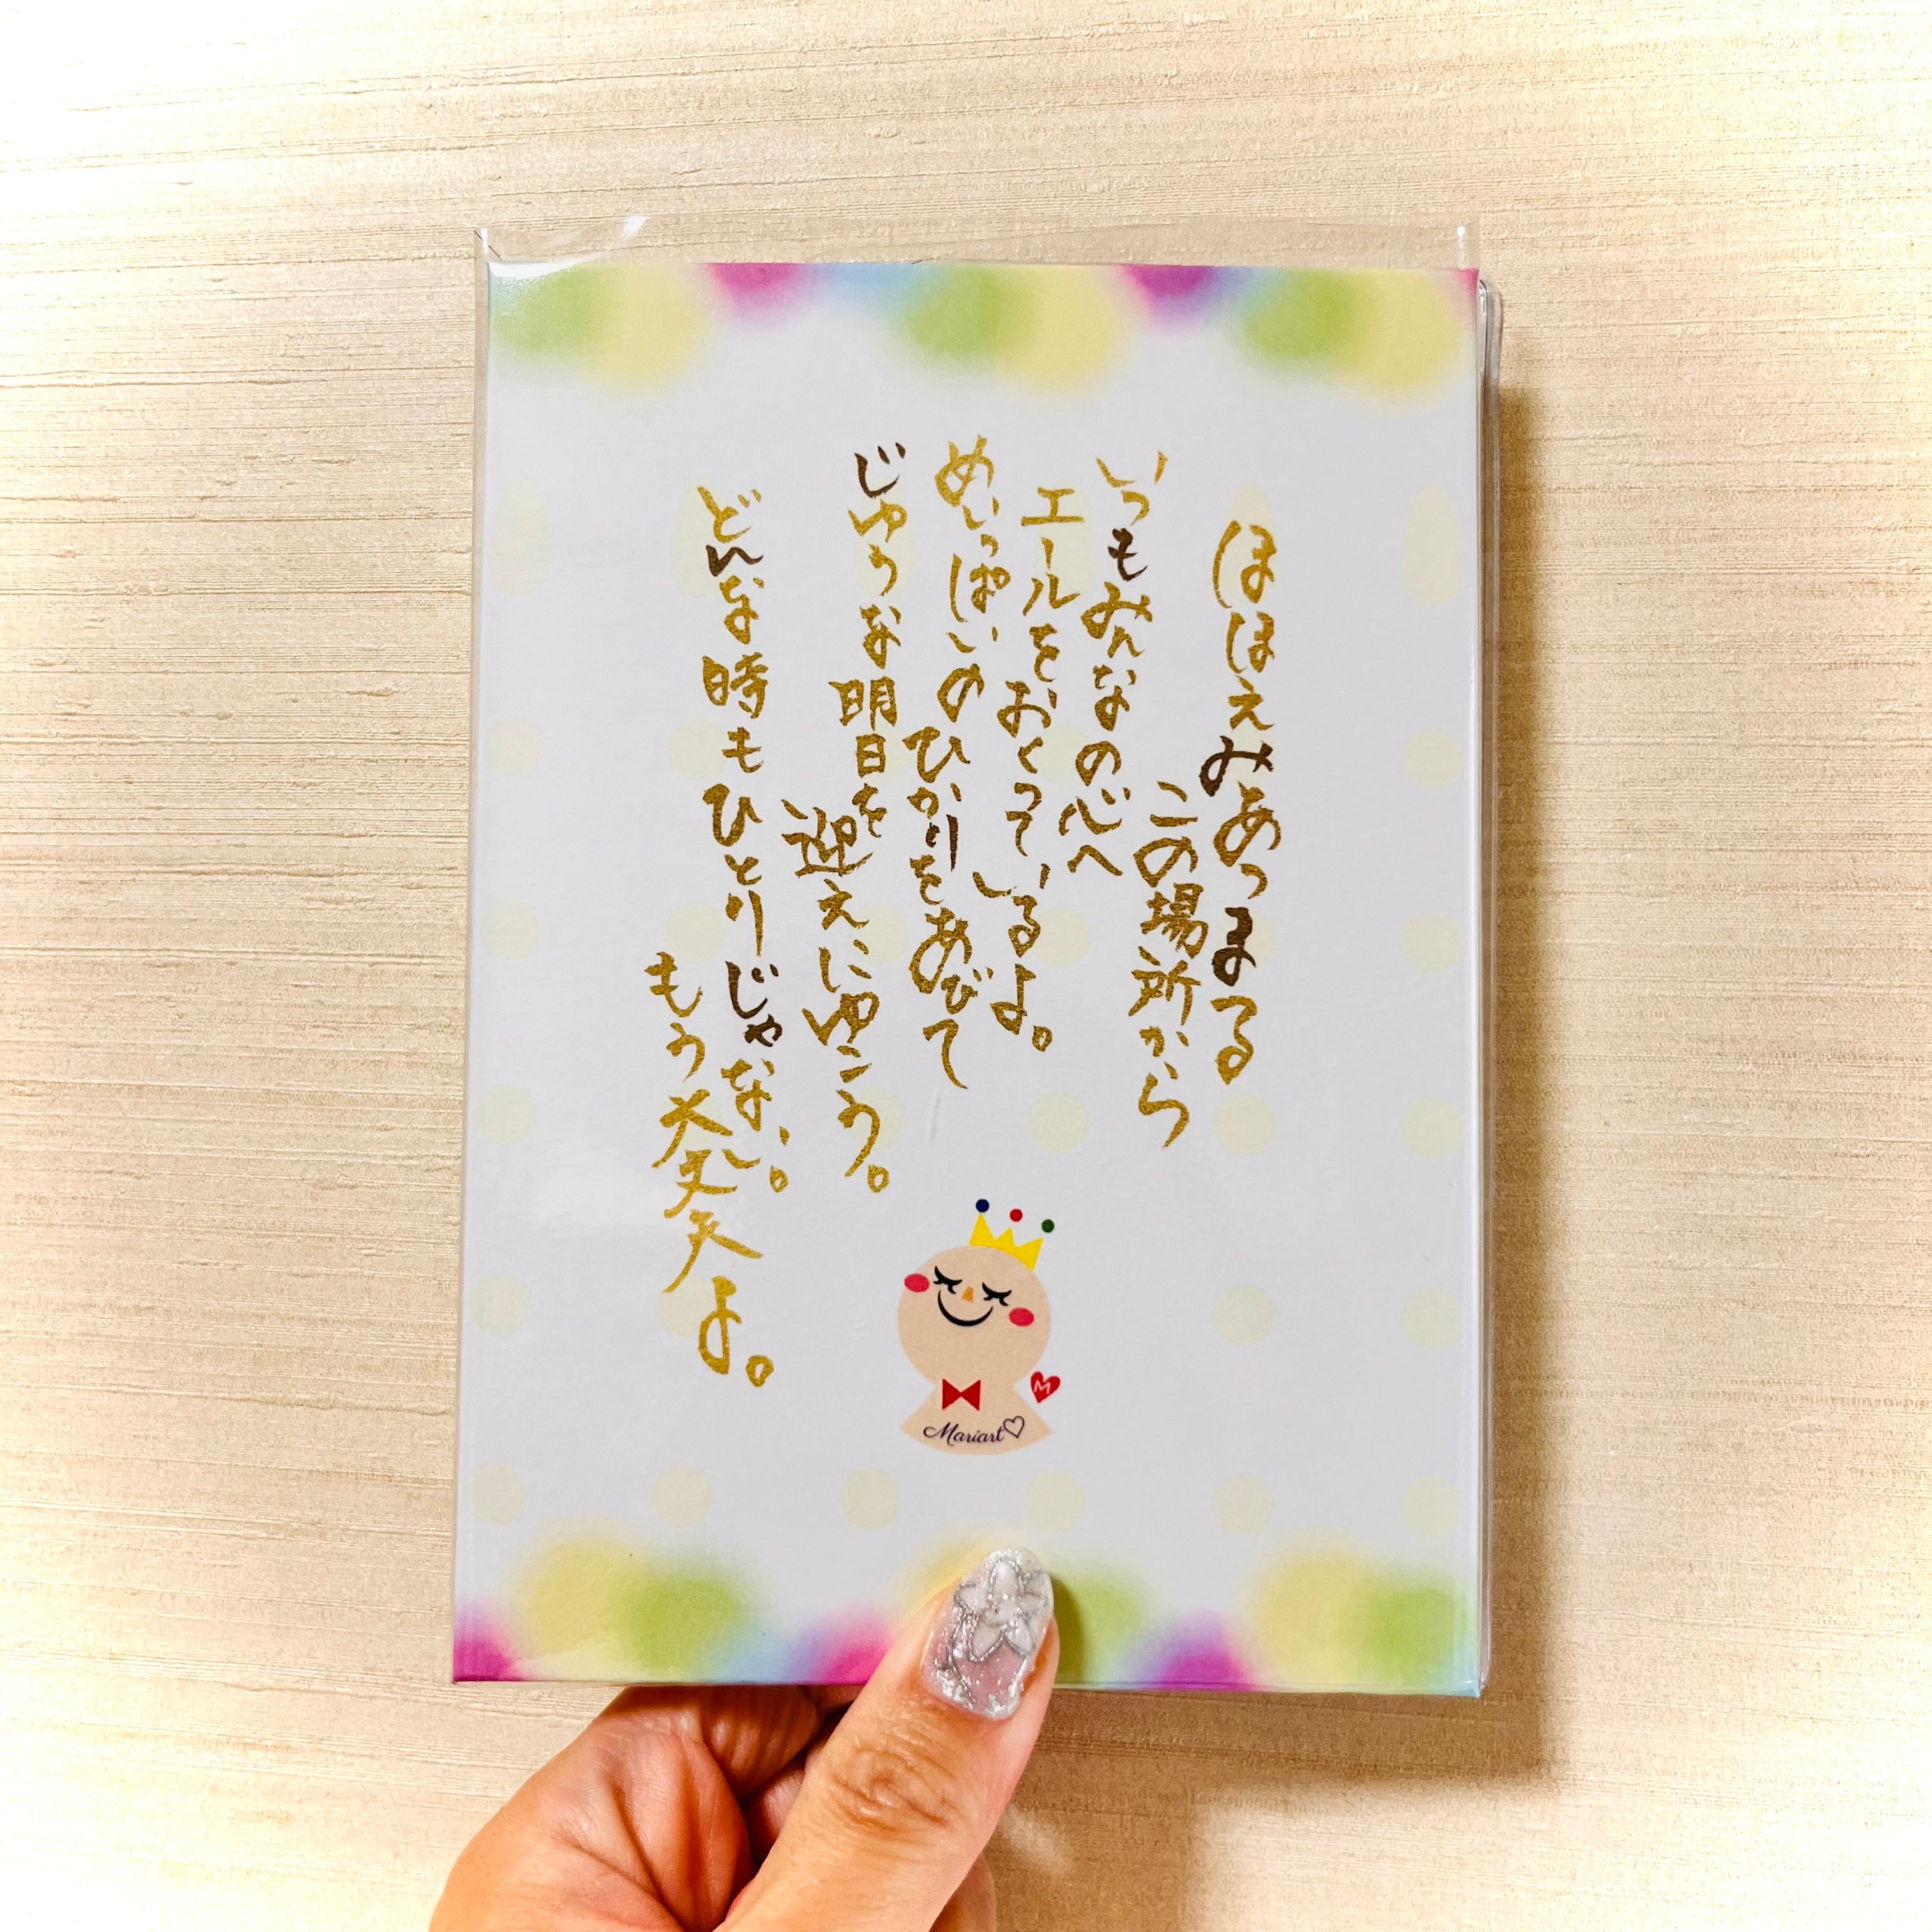 ほほえみあつまる
この場所から
いつもみんなの心へ
エールをおくっているよ。
めいっぱいのひかりをあびて
じゆうな明日を
迎えにゆこう。
どんな時もひとりじゃない。
もう大丈夫よ。
M
Mariart